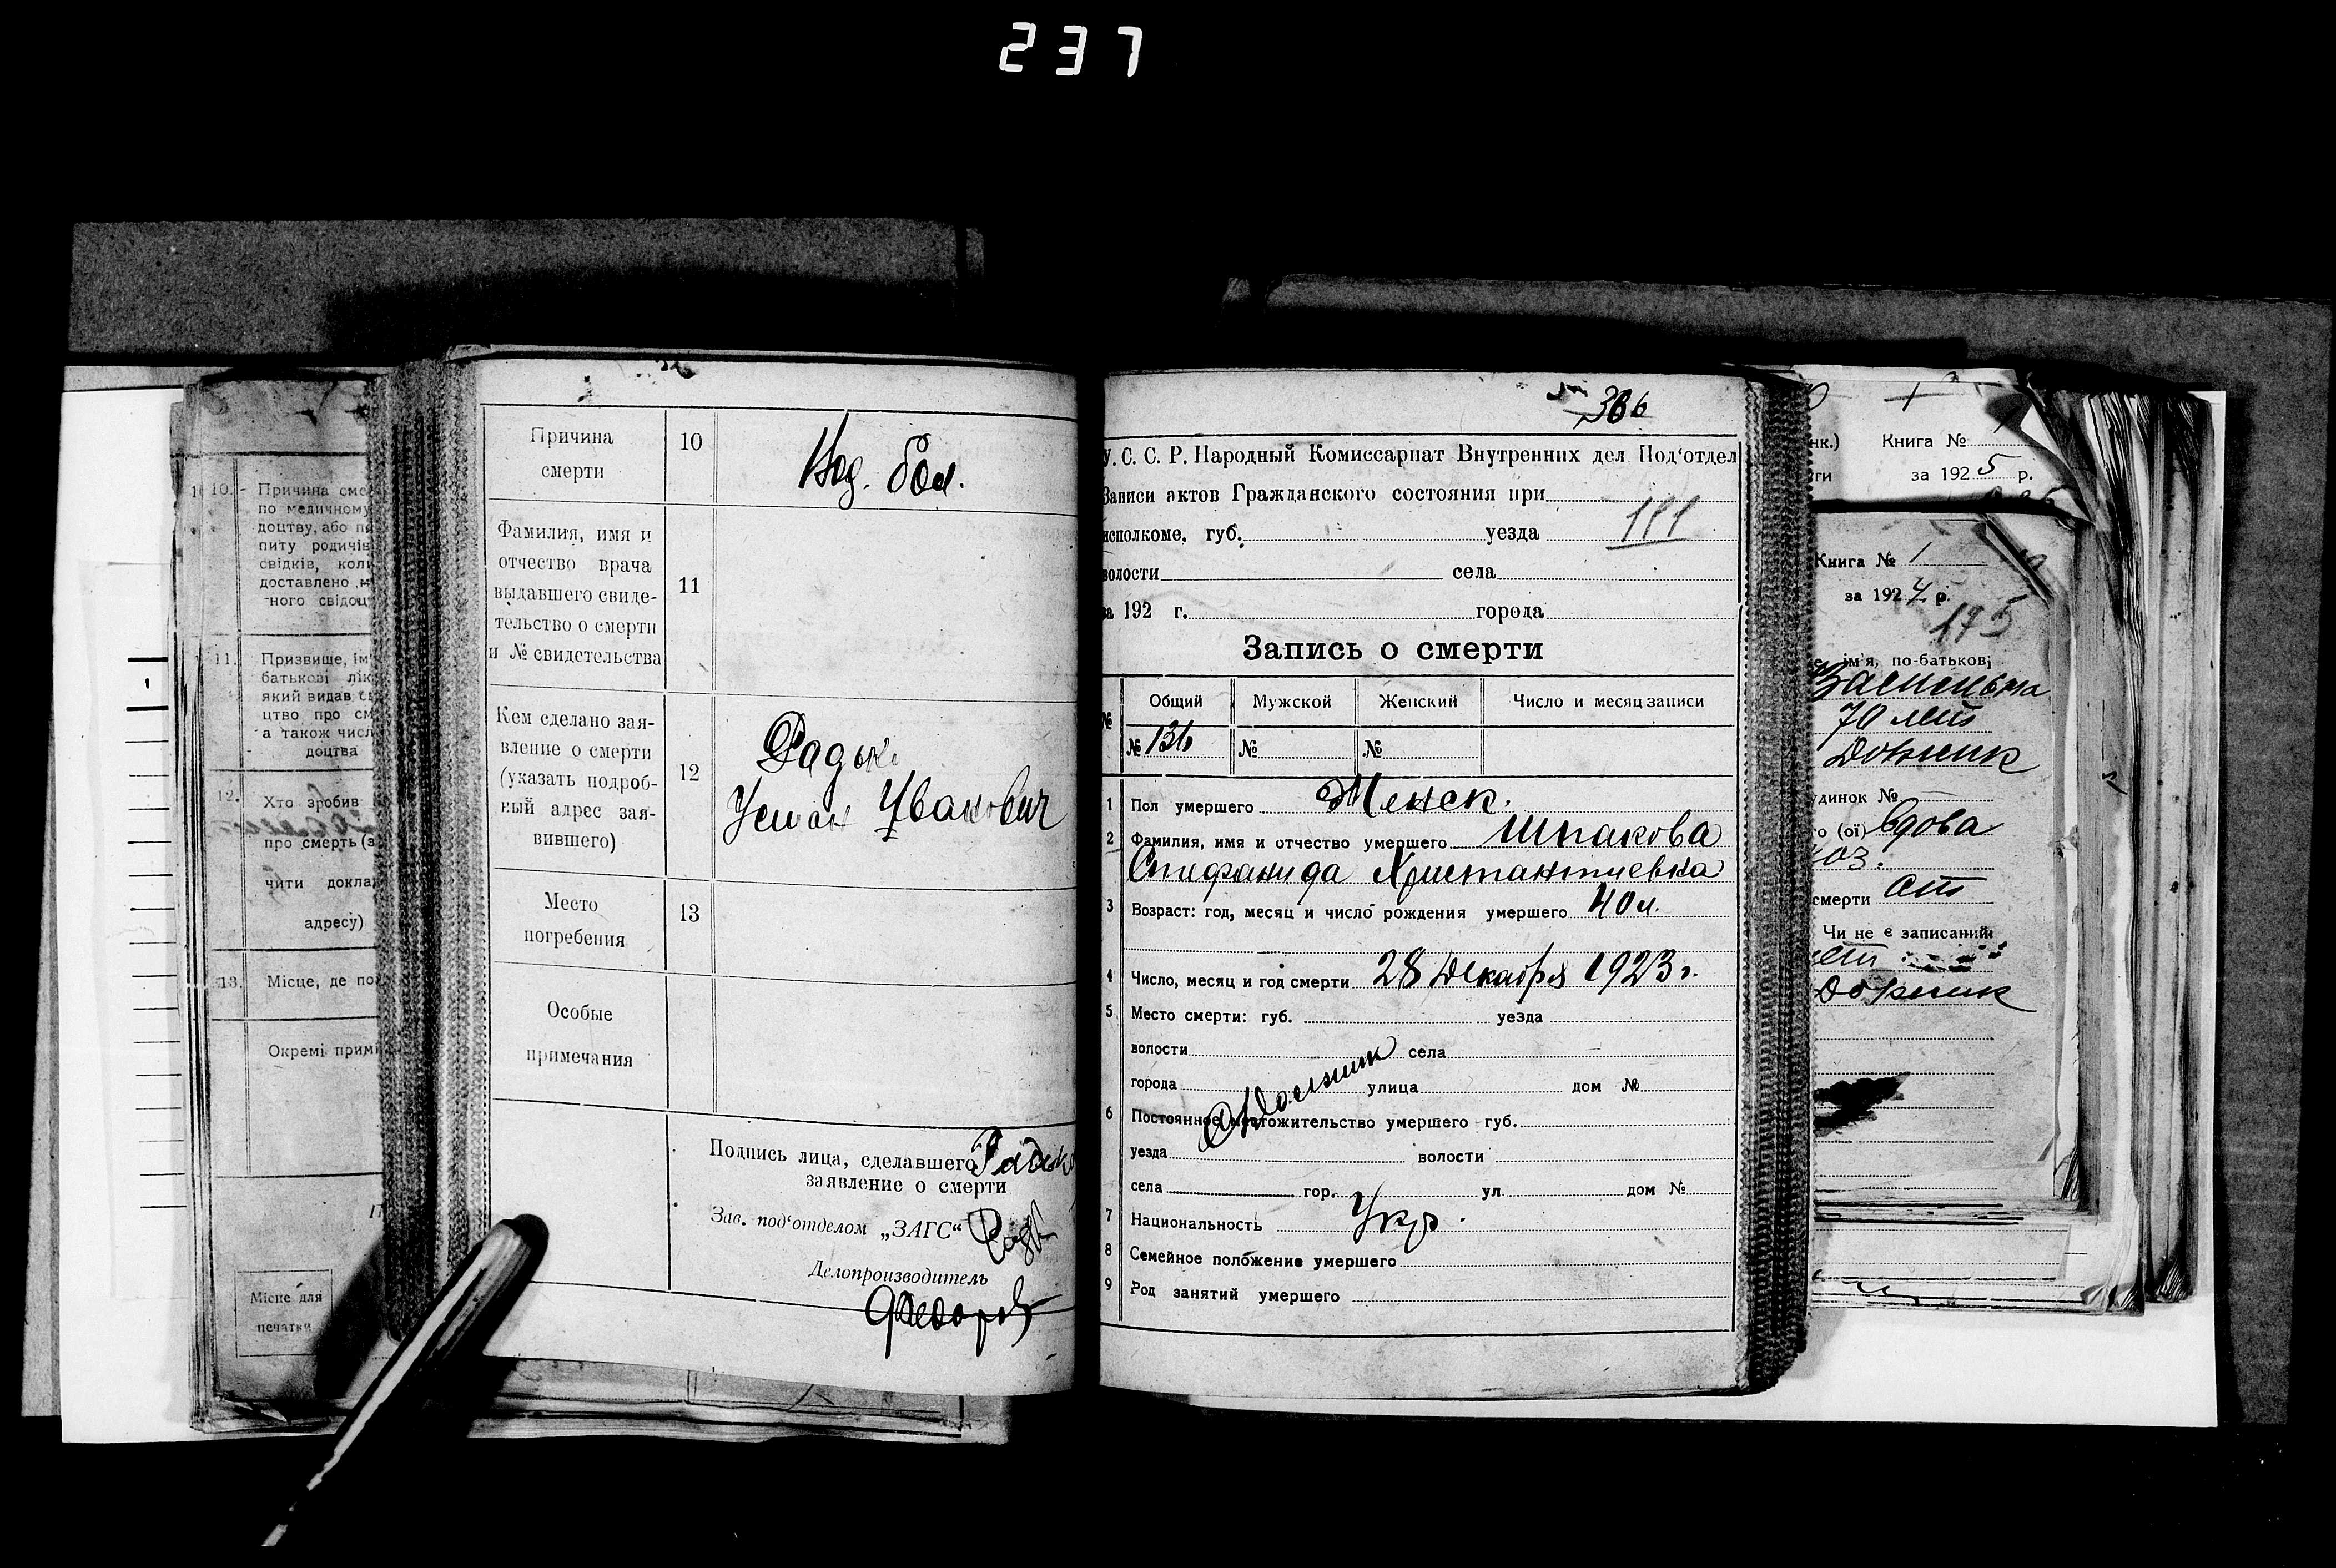 237
Причина
смерти
10
Вод. бол.
Фамилия, имя и
отчество врача
выдавшего свиде-
тельство о смерти
и № свидетельства
11
Кем сделано зая-
вление о смерти
(указать подроб-
ный адрес зая-
вившего)
12
Радько
Иван Иванович
Место
погребения
13
Особые
примечания
Подпись лица, сделавшего Радько
заявление о смерти
Зав. под‘отделом „ЗАГС“
Делопроизводитель
Федоров
10. Причина сме
по медичному
доцтву, або
питу родичів
свідків, кол
доставлено
ного свідоц
11. Призвище, ім
батькові лік
який видав
цтво про см
а також числ
доцтва
12. Хто зробив
про смерть
чити докла
адресу)
13. Місце, де по
Окремі примі
Місце для
печатки
366
У. С. С. Р. Народный Комиссариат Внутренних дел Под‘отдел
Записи актов Гражданского состояния при
исполкоме. губ. уезда 111
волости села
за 192 г. города
Запись о смерти
№ Общий Мужской Женский Число и месяц записи
№ 136 № №
1 Пол умершего Женск.
2 Фамилия, имя и отчество умершего Шпакова
Стефанида Христантиевна
3 Возраст: год, месяц и число рождения умершего 40 л.
4 Число, месяц и год смерти 28 Декабря 1923 г.
5 Место смерти: губ. уезда
волости села
города улица дом №
6 Постоянное местожительство умершего губ.
уезда волости
села гор. ул. дом №
7 Национальность Укр.
8 Семейное положение умершего
9 Род занятий умершего
нк.) Книга №
ти за 1925 р.
Книга № 1
за 1924 р.
175
ім'я, по-батькові
70 лет
динок №
го (ої) вдова
смерти от
Чи не є записаний